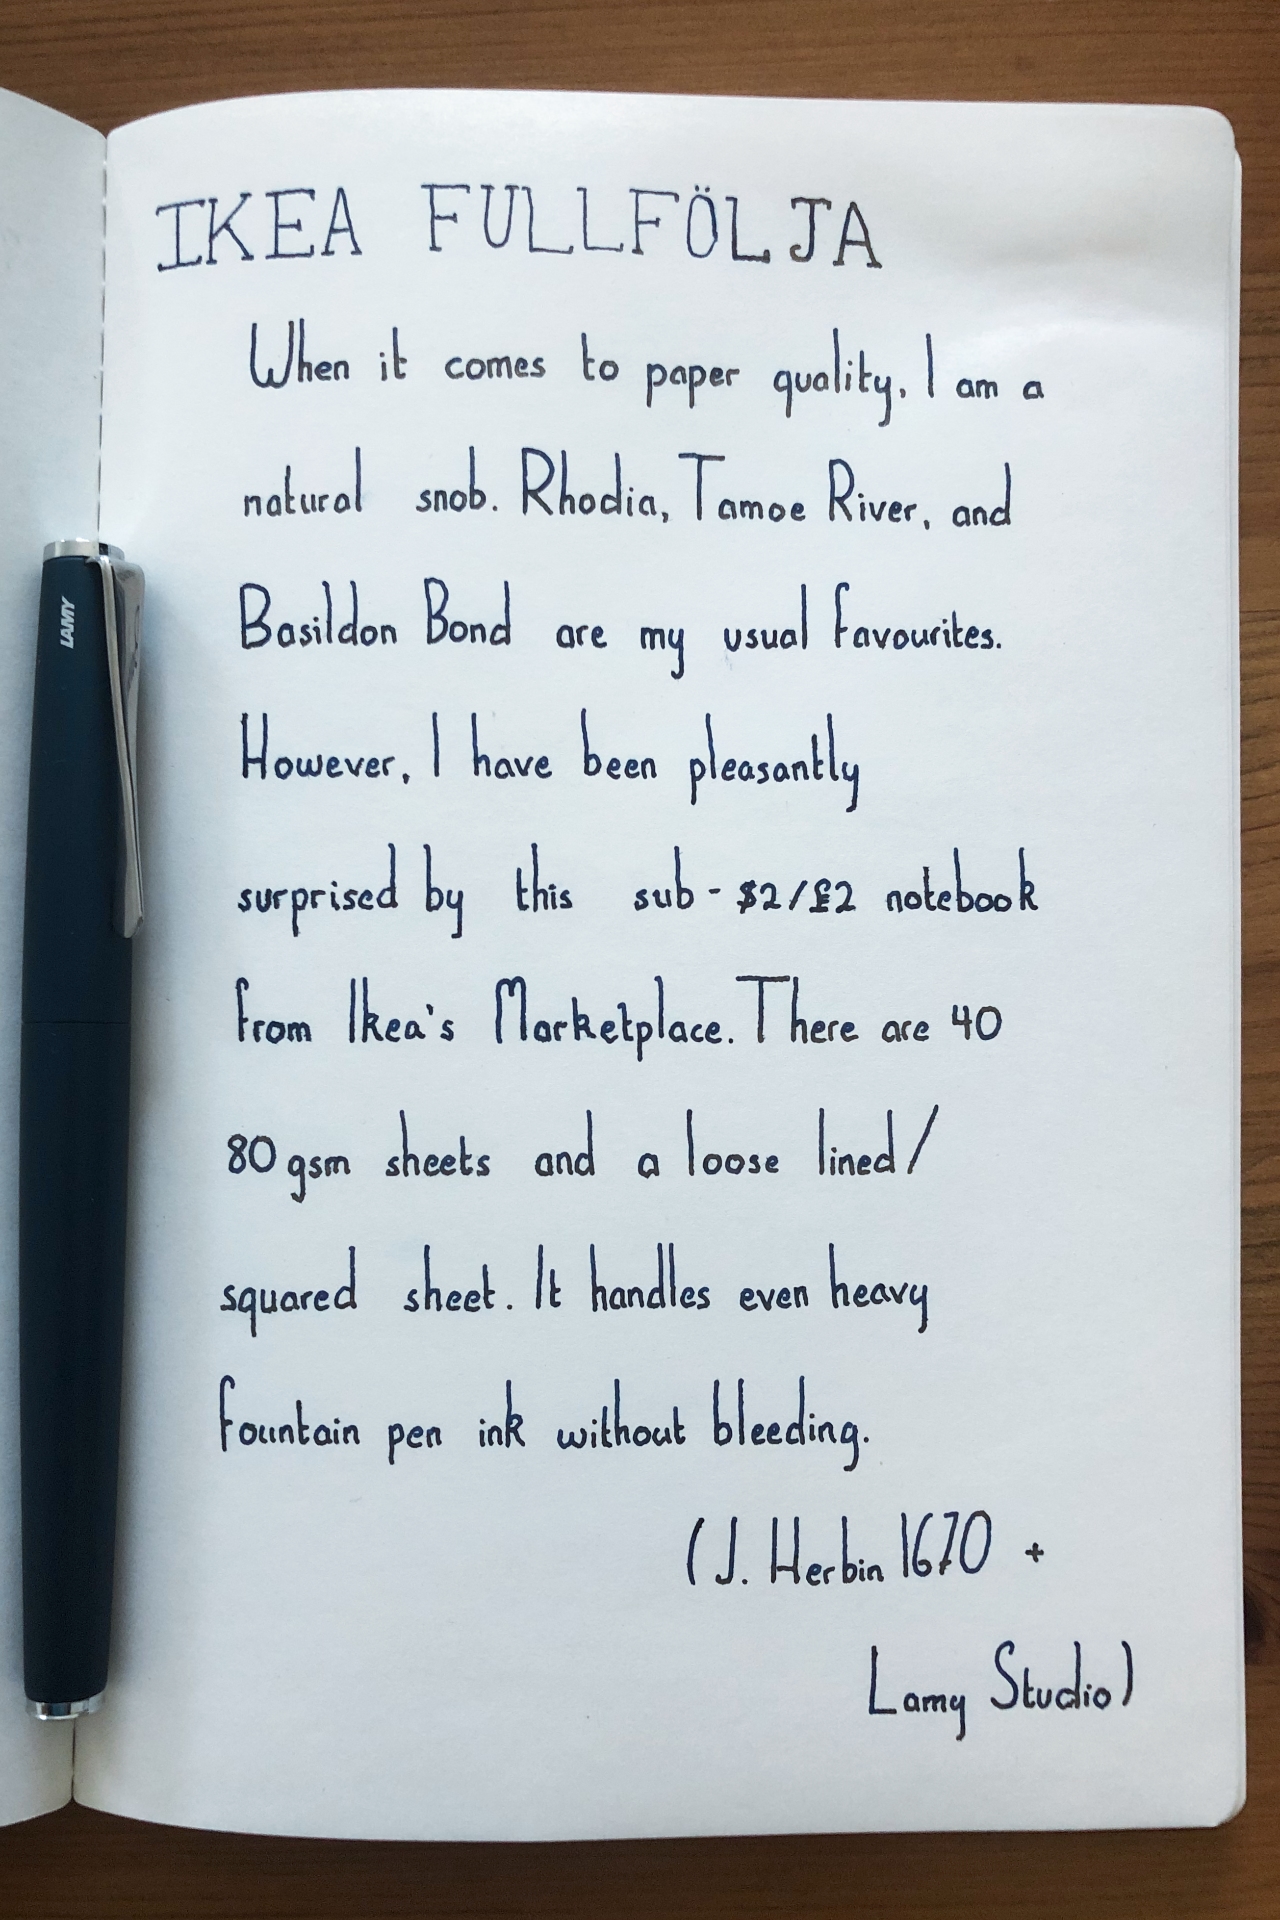 IKEA FULLFÖLJA
When it comes to paper quality, I am a
natural snob. Rhodia, Tamoe River, and
Basildon Bond are my usual favourites.
However, I have been pleasantly
surprised by this sub-$2/£2 notebook
from Ikea's Marketplace. There are 40
80gsm sheets and a loose lined/
squared sheet. It handles even heavy
fountain pen ink without bleeding.
(J. Herbin 1670 +
Lamy Studio)
LAMY